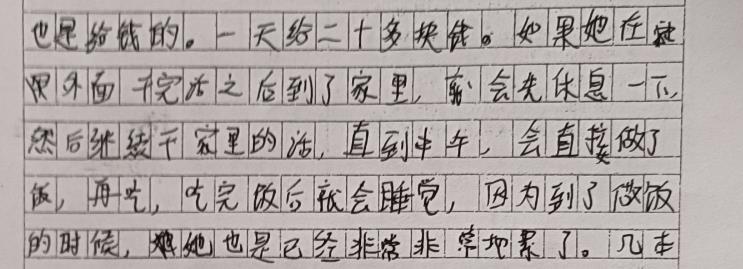 也是给钱的。一天给二十多块钱。如果她在这
里外面干完活之后到了家里，就会先休息一下，
然后继续干家里的活，直到中午，会直接做了
饭，再吃，吃完饭后就会睡觉，因为到了做饭
的时候，她也是已经非常非常地累了。几本